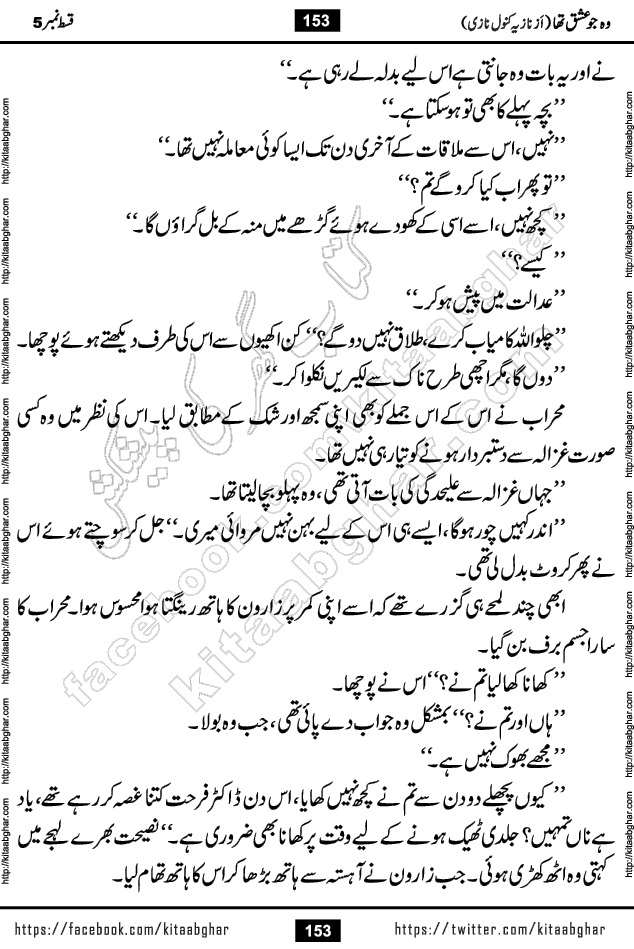 وہ جو عشق تھا (از نازیہ کنول نازی) 153 قسط نمبر 5
نے اور یہ بات وہ جانتی ہے اس لیے بدلہ لے رہی ہے۔‘‘
’’بچہ پہلے کا بھی تو ہو سکتا ہے۔‘‘
’’نہیں، اس سے ملاقات کے آخری دن تک ایسا کوئی معاملہ نہیں تھا۔‘‘
’’تو پھر اب کیا کرو گے تم؟‘‘
’’کچھ نہیں، اسے اسی کے کھودے ہوئے گڑھے میں منہ کے بل گراؤں گا۔‘‘
’’کیسے؟‘‘
’’عدالت میں پیش ہو کر۔‘‘
’’چلو اللہ کامیاب کرے، طلاق نہیں دو گے؟‘‘ کن اکھیوں سے اس کی طرف دیکھتے ہوئے پوچھا۔
’’دوں گا، مگر اچھی طرح ناک سے لکیریں نکلوا کر۔‘‘
محراب نے اس کے اس جملے کو بھی اپنی سمجھ اور شک کے مطابق لیا۔ اس کی نظر میں وہ کسی
صورت غزالہ سے دستبردار ہونے کو تیار ہی نہیں تھا۔
’’جہاں غزالہ سے علیحدگی کی بات آتی تھی، وہ پہلو بچا لیتا تھا۔
’’اندر کہیں چور ہوگا، ایسے ہی اس کے لیے بہن نہیں مروائی میری۔‘‘ جل کر سوچتے ہوئے اس
نے پھر کروٹ بدل لی تھی۔
ابھی چند لمحے ہی گزرے تھے کہ اسے اپنی کمر پر زارون کا ہاتھ رینگتا ہوا محسوس ہوا۔ محراب کا
سارا جسم برف بن گیا۔
’’کھانا کھا لیا تم نے؟‘‘ اس نے پوچھا۔
’’ہاں اور تم نے؟‘‘ بمشکل وہ جواب دے پائی تھی، جب وہ بولا۔
’’مجھے بھوک نہیں ہے۔‘‘
’’کیوں پچھلے دو دن سے تم نے کچھ نہیں کھایا، اس دن ڈاکٹر فرحت کتنا غصہ کر رہے تھے، یاد
ہے ناں تمہیں؟ جلدی ٹھیک ہونے کے لیے وقت پر کھانا بھی ضروری ہے۔‘‘ نصیحت بھرے لہجے میں
کہتی وہ اٹھ کھڑی ہوئی۔ جب زارون نے آہستہ سے ہاتھ بڑھا کر اس کا ہاتھ تھام لیا۔
https://facebook.com/kitaabghar 153 https://twitter.com/kitaabghar
http://kitaabghar.com http://kitaabghar.com http://kitaabghar.com http://kitaabghar.com http://kitaabghar.com http://kitaabghar.com http://kitaabghar.com http://kitaabghar.com
http://kitaabghar.com http://kitaabghar.com http://kitaabghar.com http://kitaabghar.com http://kitaabghar.com http://kitaabghar.com http://kitaabghar.com http://kitaabghar.com
کتاب گھر کی پیشکش
facebook.com/kitaabghar
kitaabghar.com